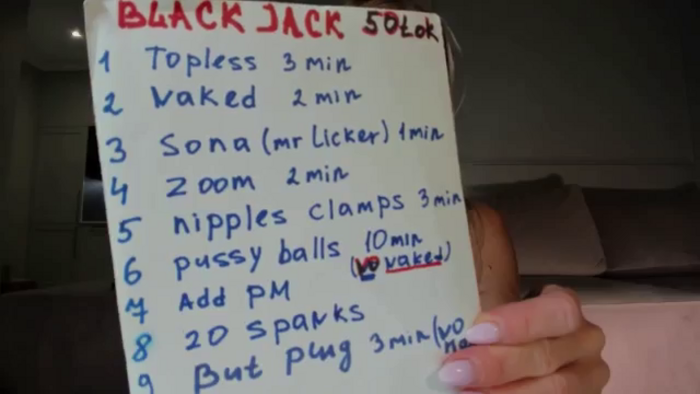 BLACK JACK 50tok
1 Topless 3 min
2 Naked 2 min
3 Sona (mr Licker) 1 min
4 Zoom 2 min
5 nipples clamps 3 min
6 pussy balls 10 min
(no naked)
7 Add PM
8 20 sparks
9 But plug 3 min (no